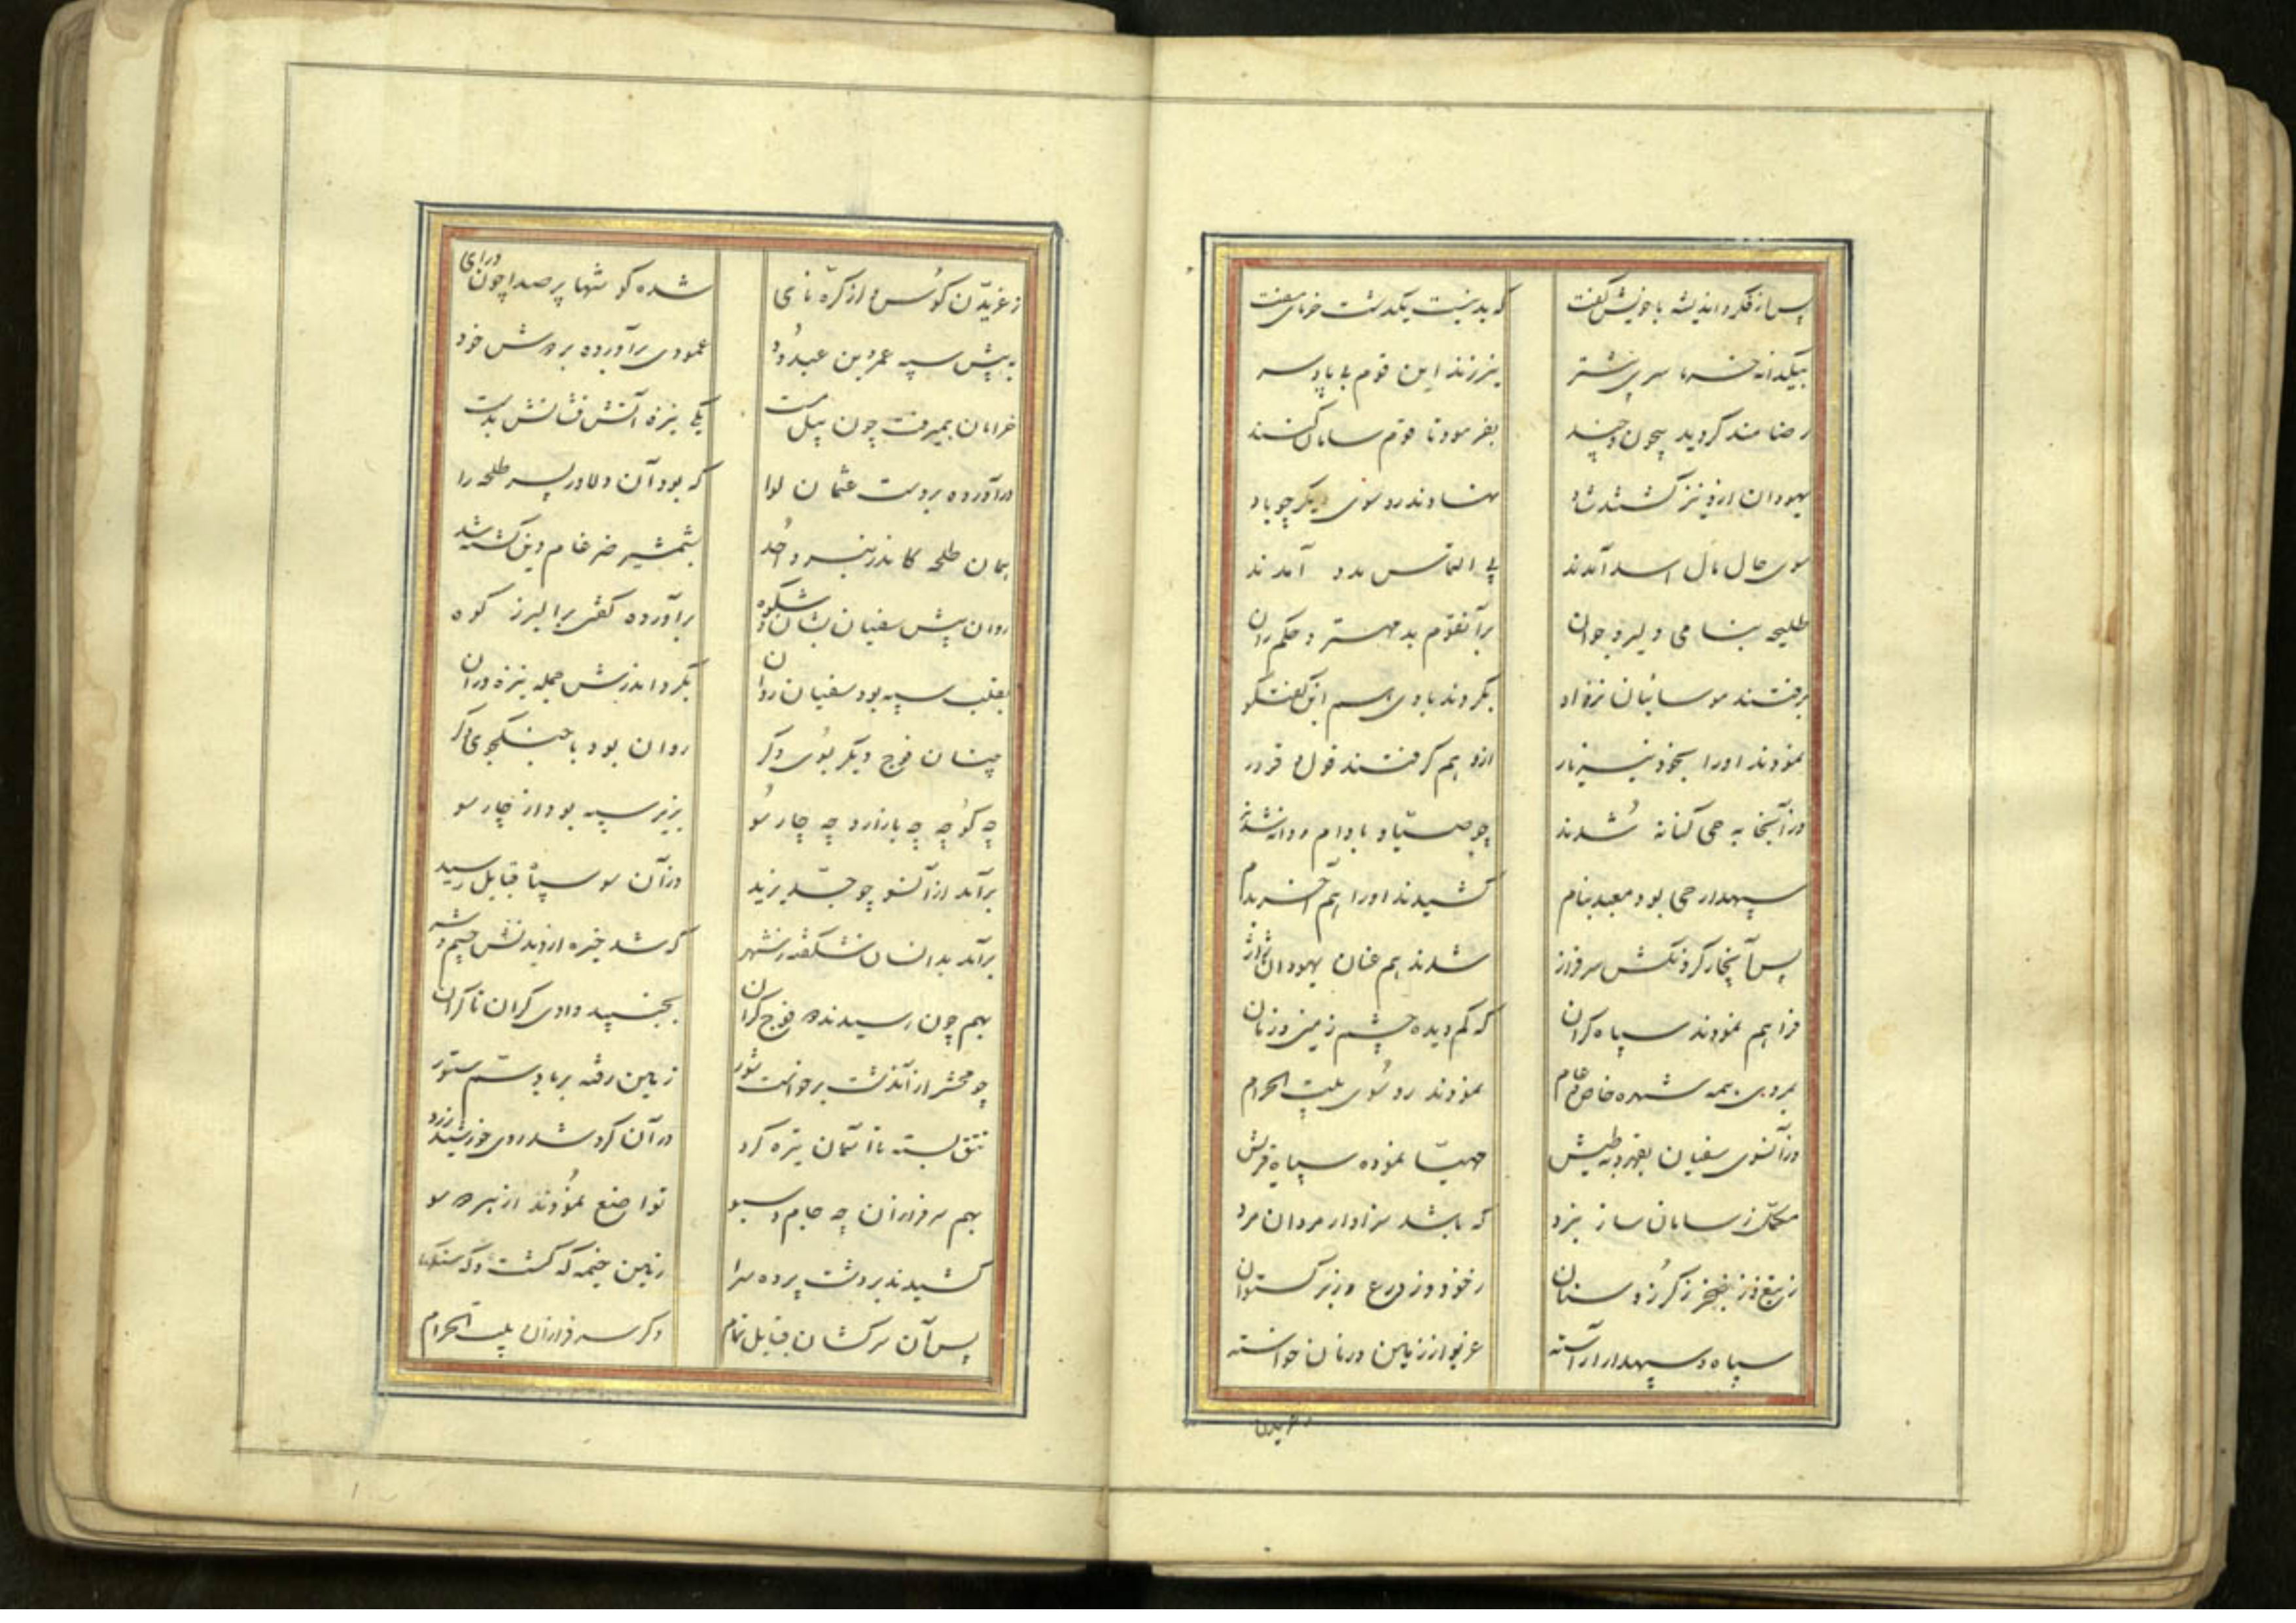 پس از فکر و اندیشه با خویش گفت که بد نیست یکدشت خرمای مفت
بیکدانه خرما سر پی شتر نیرزند این قوم بی پا و سر
رضامند کردید بیچون و چند بفرمود تا قوم سامان کنند
یهودان ازو نیز کشتند شاد نهادند رو سوی دیکر چو باد
سوی حال اسد آمدند پی التماس مدد آمدند
طلیحه بنامی دلیر و جوان بر آنقوم بد مهتر و حکم ران
برفتند موسائیان نزد او بکردند با وی هم این کفتکو
نمودند او را بخود نیز یار ازو هم کرفتند قول و قرار
وز آنجا به حی کنانه شدند چو صیاد با دام روانه شدند
سپهدار حی بود معبد بنام کشیدند او را هم آخر بدام
پس آنجا کرد سرفراز شدند هم عنان یهودان
فراهم نمودند سپاه کران که کم دیده چشم زمین و زمان
همه شهره خاص و عام نمودند رو سوی بیت الحرام
وز آنسوی سفیان بقهر و طیش مهیا نموده سپاه قریش
مکمل ز سامان ساز نبرد که باشد سزاوار مردان مرد
ز تیغ و ز خنجر ز کرز و سنان ز خود و ز درع و ز برکستوان
سپاه و سپهدار آراسته غریو از زمین و زمان خواسته
ز غریدن
ز غریدن کوس و از کره نای شده کوشها پر صدا چون درای
به پیش سپه عمرو بن عبدود عمودی برآورده بر دوش خود
خرامان همیرفت چون پیل مست یکی نیزه آتش فشانش بدست
درآورده بر دست عثمان لوا که بود آن دلاور پسر طلحه را
همان طلحه کاندر نبرد احد بشمشیر ضرغام دین کشته شد
روان پیش سفیان بشان و شکوه برآورده کفتی برا البرز کوه
بقلب سپه بود سفیان روان بکرد اندرش جمله نیزه وران
چنان فوج دیکر بسوی دکر روان بود با جنکجوی دکر
چه کوچه چه بازار و چه چار سو بزیر سپه بود از چار سو
برآمد از آنسو چو جیش یزید وز آن سو سپاه قبایل رسید
برآمد بدانسان شکفته ز شهر که شد خیره از دیدنش چشم دهر
بهم چون رسیدند فوج کران بجنبید وادی کران تا کران
چو محشر از آندشت برخواست شور زمین رفته بر باد سم ستور
تتق بسته تا آسمان تیره کرد در آن کرد شد روی خورشید زرد
بهم سرفرازان چه جام و سبو تواضع نمودند از هر دو سو
کشیدند بر دشت پرده سرا زمین خیمه که کشت
پس آن سرکشان قبایل تمام دکر سرفرازان بیت الحرام